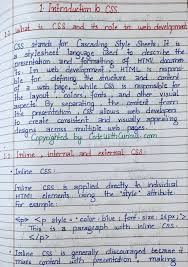 1. Introduction to CSS
1.1 What is CSS and its role in web development
CSS stands for Cascading Style Sheets. It is
a stylesheet language used to describe the
presentation and formatting of HTML documen
ts. In web development, HTML is respons
ible for defining the structure and content
of a web page, while CSS is responsible for
the layout, colors, fonts and other visual
aspects. By separating the content from
the presentation, CSS allows web developers
to create consistent and visually appealing
designs across multiple web pages.
© Copyrighted by CodeWithCurious.com
Inline, internal, and external CSS:
• Inline CSS:
Inline CSS is applied directly to individual
HTML elements using the "style" attribute
for example,
<p> <p style = "color: blue; font-size: 16px;">
This is a paragraph with inline CSS.
</p>
Inline CSS is generally discouraged because it
mixes content with presentation, making